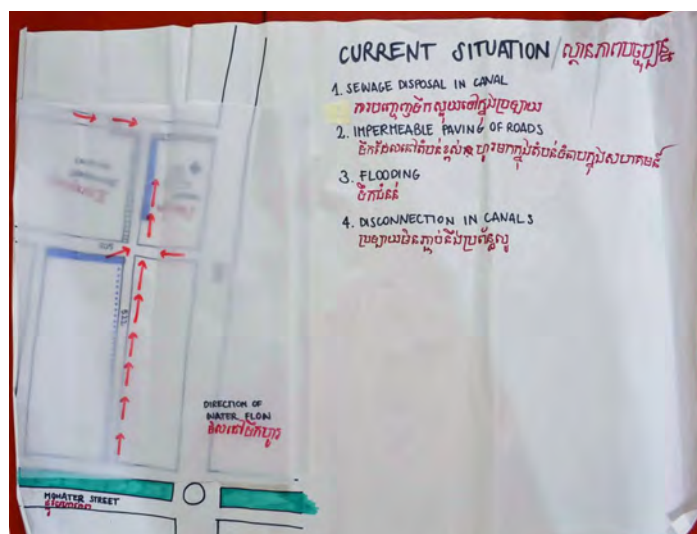 CURRENT SITUATION / ស្ថានភាពបច្ចុប្បន្ន
1. SEWAGE DISPOSAL IN CANAL
ការបញ្ចេញទឹកស្អុយទៅក្នុងប្រឡាយ
2. IMPERMEABLE PAVING OF ROADS
ទឹកដែលនៅតំបន់ខ្ពស់ ហូរមកក្នុងតំបន់ទំនាបក្នុងសហគមន៍
3. FLOODING
ទឹកជំនន់
4. DISCONNECTION IN CANALS
ប្រឡាយមិនភ្ជាប់នឹងប្រព័ន្ធលូ
DIRECTION OF
WATER FLOW
ទិសដៅទឹកហូរ
STREET